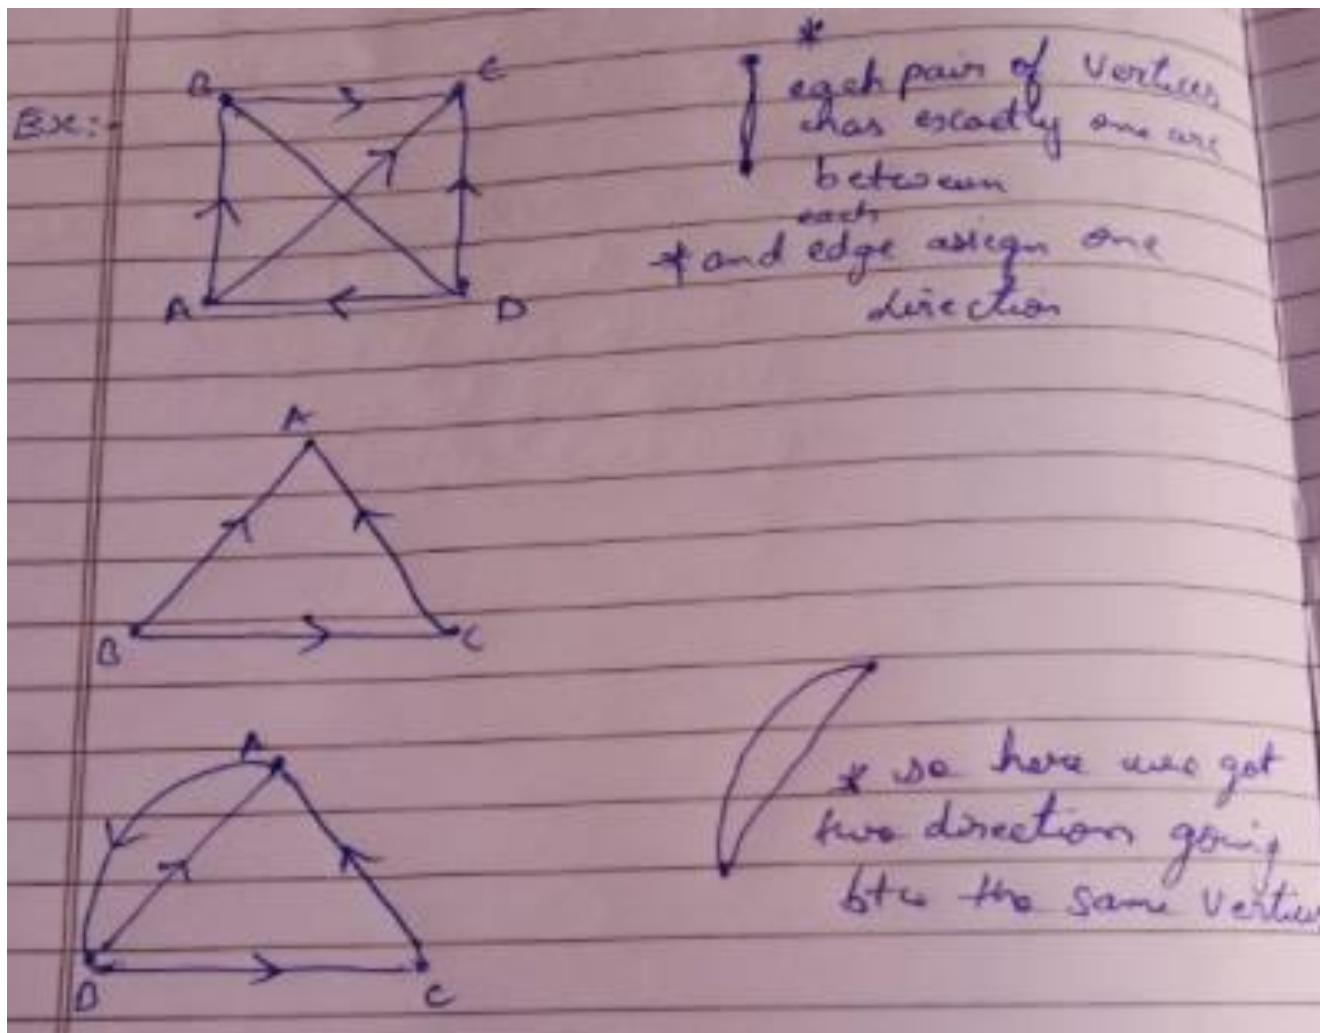 Ex:-
B C
A D
*
each pair of vertices
has exactly one arc
between
each
* and edge assign one
direction
A
B C
A
B C
* so here we got
two direction going
btw the same vertices